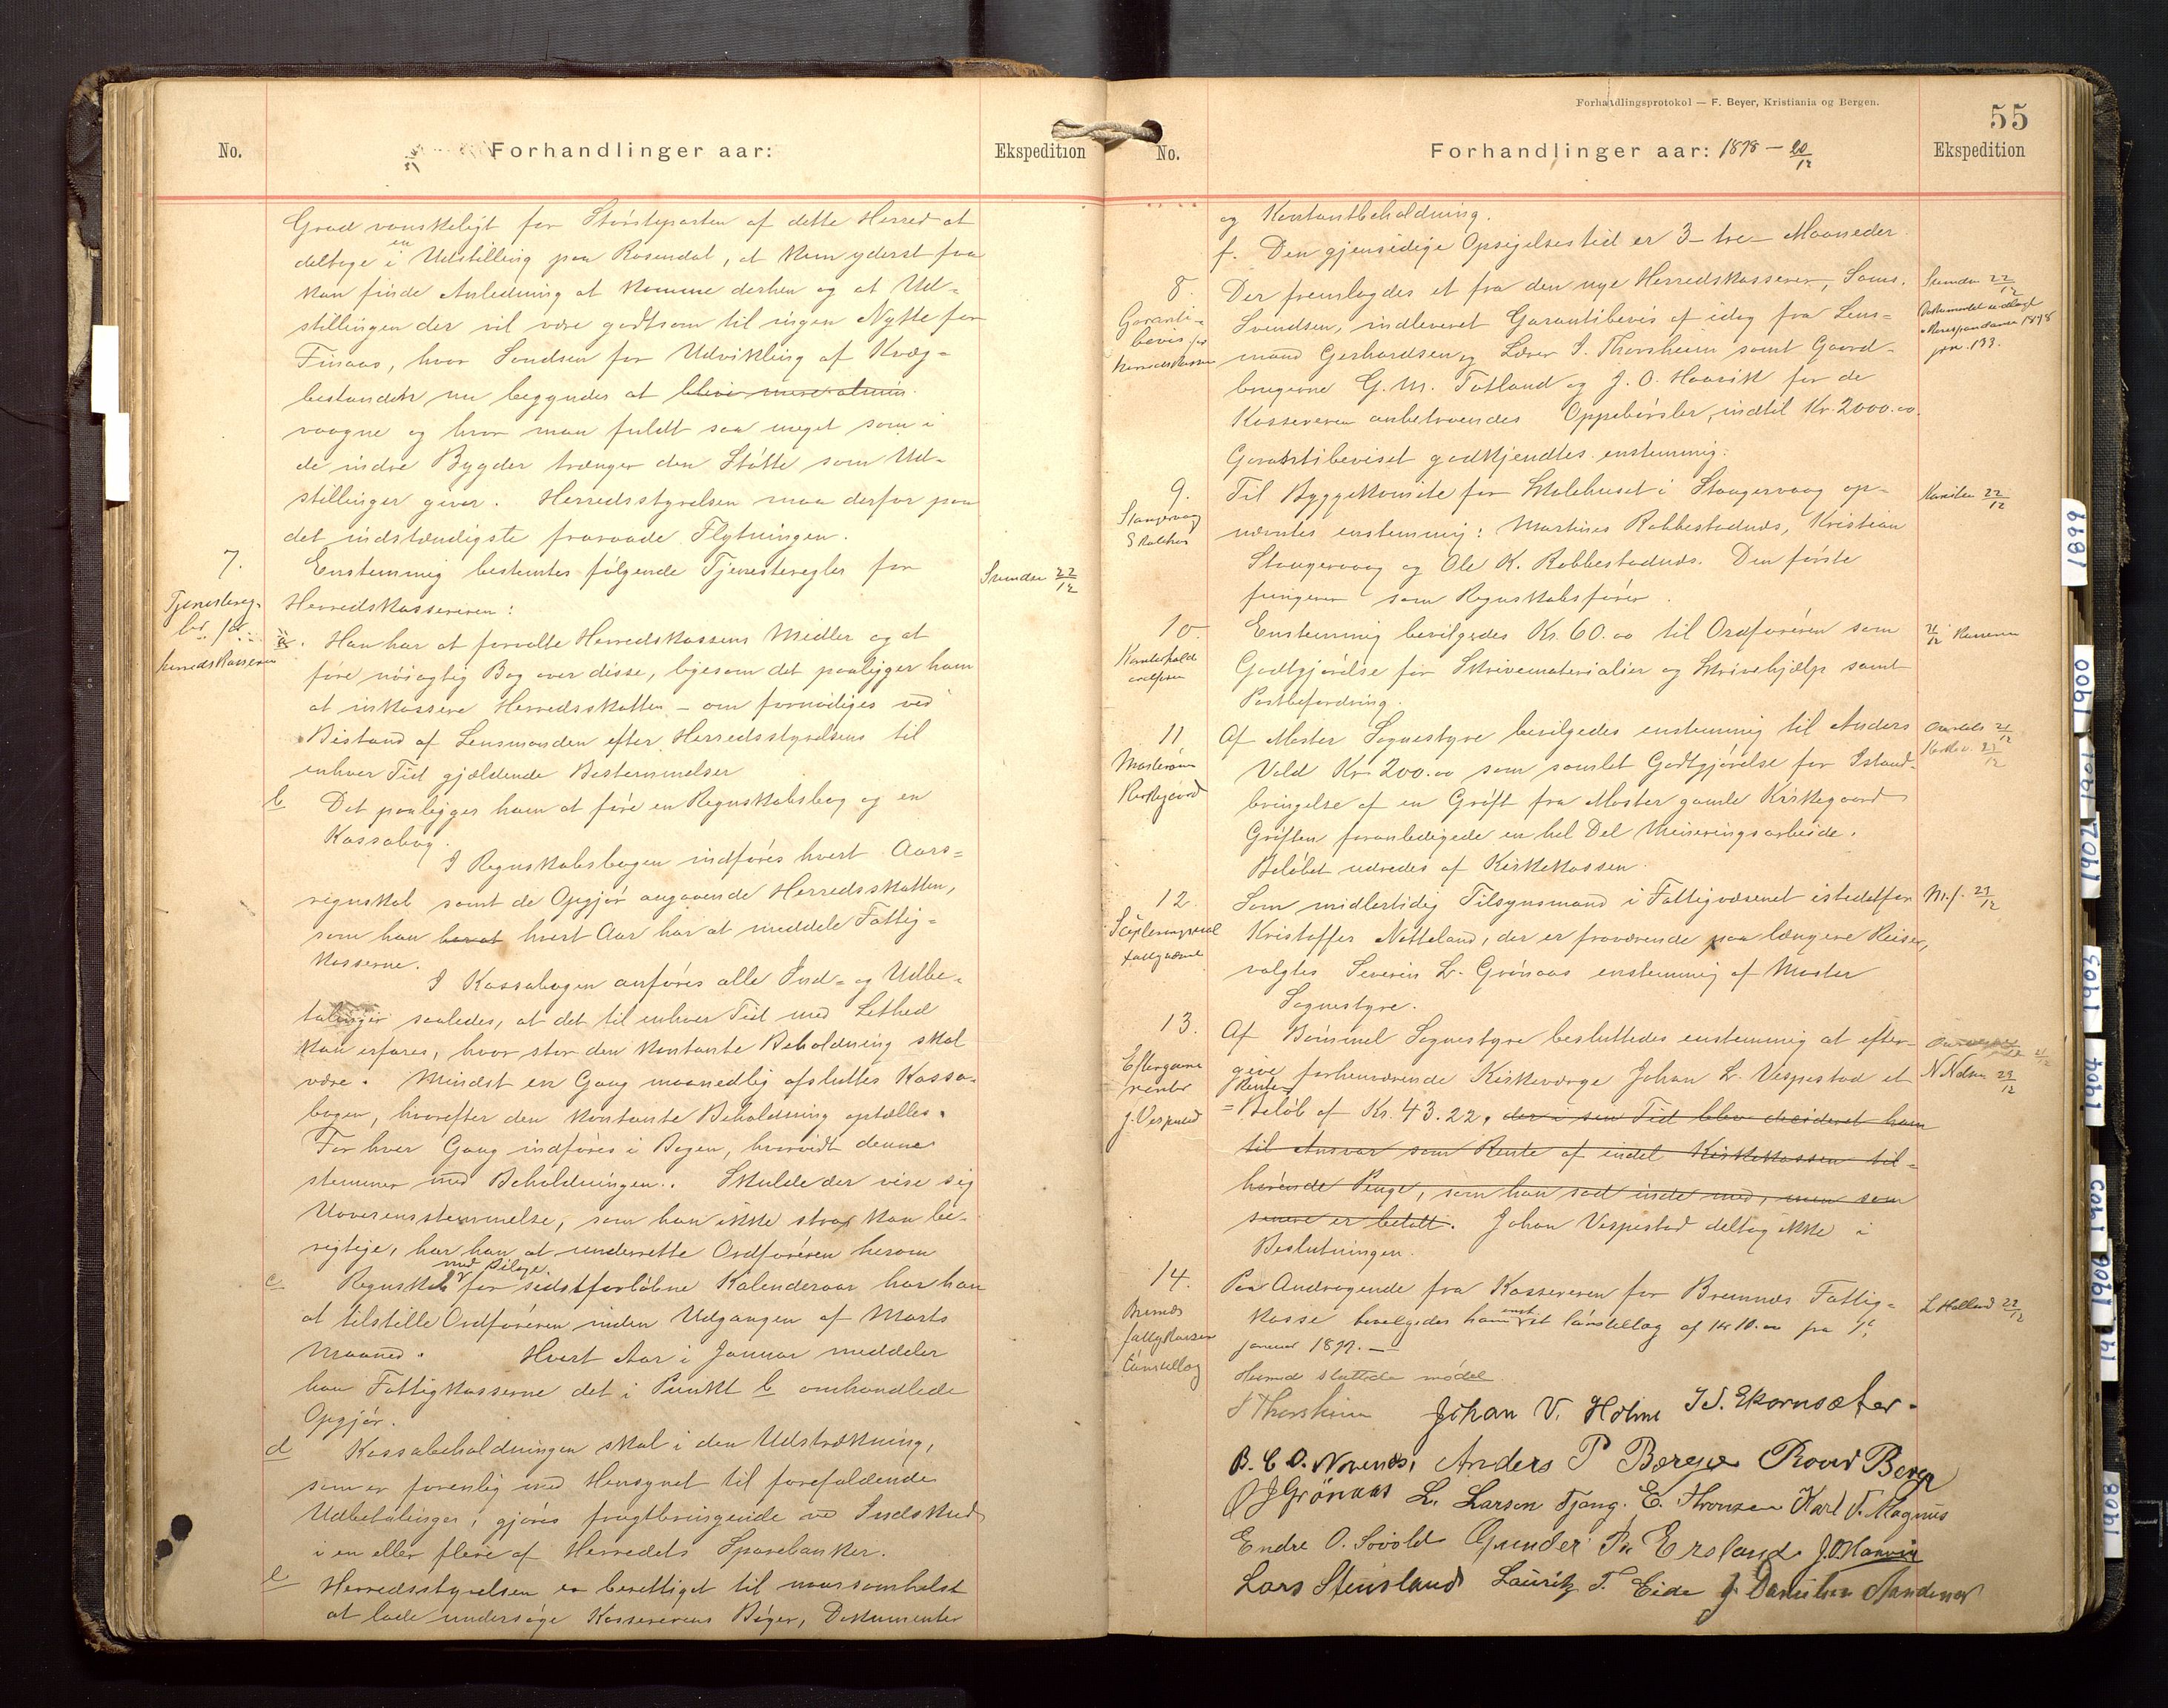 No.
Forhandlinger aar:
Ekspedition
Grad vanskeligt for Størsteparten af dette Herred at
deltage i en Udstilling paa Rosendal, at kun yderst faa
kan finde Anledning at komme derhen og at Ud-
stillingen der vil være godtsom til ingen Nytte for
Finaas, hvor Sandsen for Udvikling af Kvæg-
bestanden nu begynder at blive mere almin
vaagne og hvor man fuldt saa meget som i
de indre Bygder trænger den Støtte som Ud-
stillinger giver. Herredsstyrelsen maa derfor paa
det indstændigste fraraade Flytningen.
7.
Tjenestereg-
ler for
Herredskasseren
Enstemmig bestemtes følgende Tjenesteregler for
Herredskassereren:
Svendsen 22/12
a. Han har at forvalte Herredskassens Midler og at
føre nøiagtig Bog over disse, ligesom det paaligger ham
at inkassere Herredsskatten - om fornødiges ved
Bistand af Lensmanden efter Herredsstyrelsens til
enhver Tid gjældende Bestemmelser
b Det paaligger ham at føre en Regnskabsbog og en
Kassabog.
I Regnskabsbogen indføres hvert Aars-
regnskab samt de Opgjør angaaende Herredsskatten,
som han har at hvert Aar har at meddele Fattig-
kasserne.
I Kassabogen anføres alle Ind- og Udbe-
talinger saaledes, at det til enhver Tid med Lethed
kan erfares, hvor stor den kontante Beholdning skal
være. Mindst en Gang maanedlig afsluttes Kassa-
bogen, hvorefter den kontante Beholdning optælles.
For hver Gang indføres i Bogen, hvorvidt denne
stemmer med Beholdningen. Skulde der vise sig
Uoverensstemmelse, som han ikke strax kan be-
rigtige, har han at underrette Ordføreren herom
c Regnskab med Bilage for sidstforløbne Kalenderaar har han
at tilstille Ordføreren inden Udgangen af Marts
Maaned. Hvert Aar i Januar meddeler
han Fattigkasserne det i Punkt b omhandlede
Opgjør.
d Kassabeholdningen skal i den Udstrækning,
som er forenlig med Hensynet til forefaldende
Udbetalinger, gjøres frugtbringende ved Indskud
i en eller flere af Herredets Sparebanker.
e Herredsstyrelsen er berettiget til naarsomhelst
at lade undersøge Kassererens Bøger, Dokumenter
Forhandlingsprotokol — F. Beyer, Kristiania og Bergen.
55
No.
Forhandlinger aar: 1898 - 20/12
Ekspedition
og Kontantbeholdning.
f. Den gjensidige Opsigelsestid er 3 - tre - Maaneder.
8.
Garanti-
bevis for
Herredskassen
Der fremlagdes et fra den nye Herredskasserer, Sams.
Svendsen, indleveret Garantibevis af idag fra Lens-
mand Gerhardsen og Lærer I. Thorsheim samt Gaard-
brugerne G. M. Totland og J. O. Haavik for de
Kassereren anbetroendes Oppebørsler, indtil Kr. 2000.00.
Garantibeviset godkjendtes enstemmig.
Svendsen 22/12
Dokumentet indlagt
i Korrespondance 1898
jnr. 133.
9.
Stangervaag
Skolehus
Til Byggekomite for Skolehuset i Stangervaag op-
nævntes enstemmig: Martines Robbestadnæs, Kristian
Stangervaag og Ole K. Robbestadnæs. Den første
fungerer som Regnskabsfører.
Komiteen 22/12
10.
Enstemmig bevilgedes Kr. 60.00 til Ordføreren som
Godtgjørelse for Skrivematerialier og Skrivehjælp samt
Postbefordring.
21/12
11
Mosterøens
Kirkegaard
Af Moster Sognestyre bevilgedes enstemmig til Anders
Vold Kr. 200.00 som samlet Godtgjørelse for Istand-
bringelse af en Grøft fra Moster gamle Kirkegaard
Grøften foranledigede en hel Del Mineringsarbeide.
Beløbet udredes af Kirkekassen.
21/12
12.
Som midlertidig Tilsynsmand i Fattigvæsenet istedetfor
Kristoffer Notteland, der er fraværende paa længere Reiser,
valgtes Severin L. Grönaas enstemmig af Moster
Sognestyre.
M.f. 23/12
13.
Eftergivne
renter
J. Vespestad
Af Bømmel Sognestyre besluttedes enstemmig at efter-
give forhenværende Kirkeværge Johan L. Vespestad et
Rente-
= Beløb af Kr. 43.22, der i sin Tid blev decideret ham
til Ansvar som Rente af endel Kirkekassen til-
hørende Penge, som han sad inde med, men som
senere er betalt. Johan Vespestad deltog ikke i
Beslutningen.
14.
Bremnes
fattigkasserer
Lønstillæg
Paa Andragende fra Kassereren for Bremnæs Fattig-
kasse bevilgedes ham enst. et lønstillæg af kr 10.00 fra 1ste
januar 1899. —
L Holland 22/12
Hermed sluttede mødet
I Thorsheim Johan V. Holme I S. Ekornsæter.
B. C. O. Novenæs, Anders P Berge Roar Berge
O J Grönaas L. Larsen Tjong. E. Thronsen Karl T. Magnus
Endre O. Sövold Gunder Pn Ersland J. O Haavik
Lars Steinsland Lauritz T. Eide J. Danielsen Sandenæs
1899
1900
1901
1902
1903
1904
1905
1906
1908